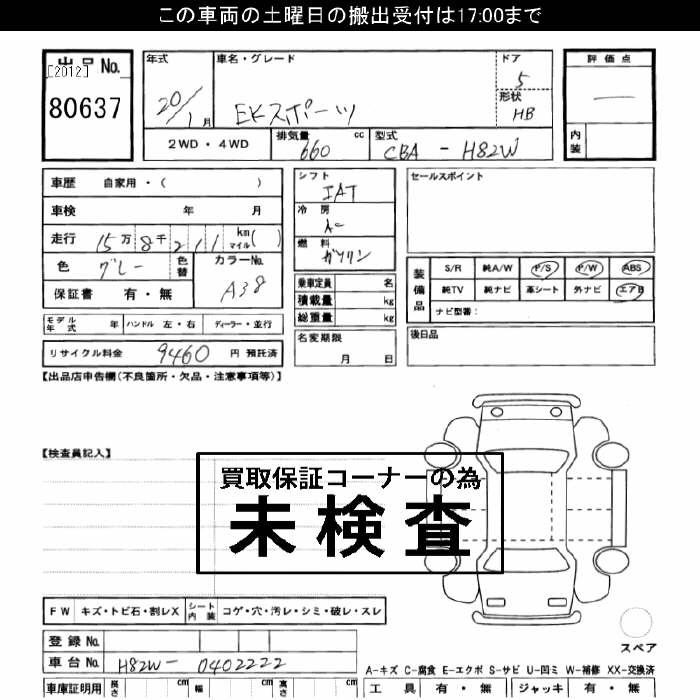 この車両の土曜日の搬出受付は17:00まで
出品No.
[2012]
80637
年式
20/1月
車名・グレード
EKスポーツ
ドア
5
形状
HB
評価点
—
内装
2WD・4WD
排気量
660 cc
型式
CBA - H82W
車歴 自家用・( )
車検 年 月
走行 15万8千211 km マイル( )
色 グレー
色替
カラーNo.
A38
保証書 有・無
シフト
IAT
冷房
燃料
ガソリン
乗車定員 名
積載量 kg
総重量 kg
セールスポイント
装備品
S/R 純A/W P/S P/W ABS
純TV 純ナビ 革シート 外ナビ エアB
ナビ型番:
モデル年式 年 ハンドル 左・右 ディーラー・並行
リサイクル料金 9460 円 預託済
名変期限
月 日
後日品
【出品店申告欄(不良箇所・欠品・注意事項等)】
【検査員記入】
買取保証コーナーの為
未検査
FW キズ・トビ石・割レX シート内装 コゲ・穴・汚レ・シミ・破レ・スレ
登録No.
車台No. H82W- 0402222
スペア
A-キズ C-腐食 E-エクボ S-サビ U-凹ミ W-補修 XX-交換済
車庫証明用 長さ cm 幅 cm 高さ cm
工具 有・無 ジャッキ 有・無